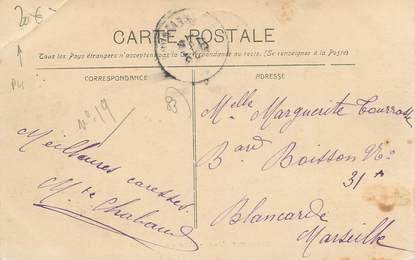 20€
CARTE POSTALE
Tous les Pays étrangers n'acceptent pas la correspondance au recto. (Se renseigner à la Poste)
CORRESPONDANCE
ADRESSE
P4
n° 19
83
Meilleures caresses.
Mte Chabaud
Melle Marguerite
Bard Boisson No
31
Blancarde
Marseille